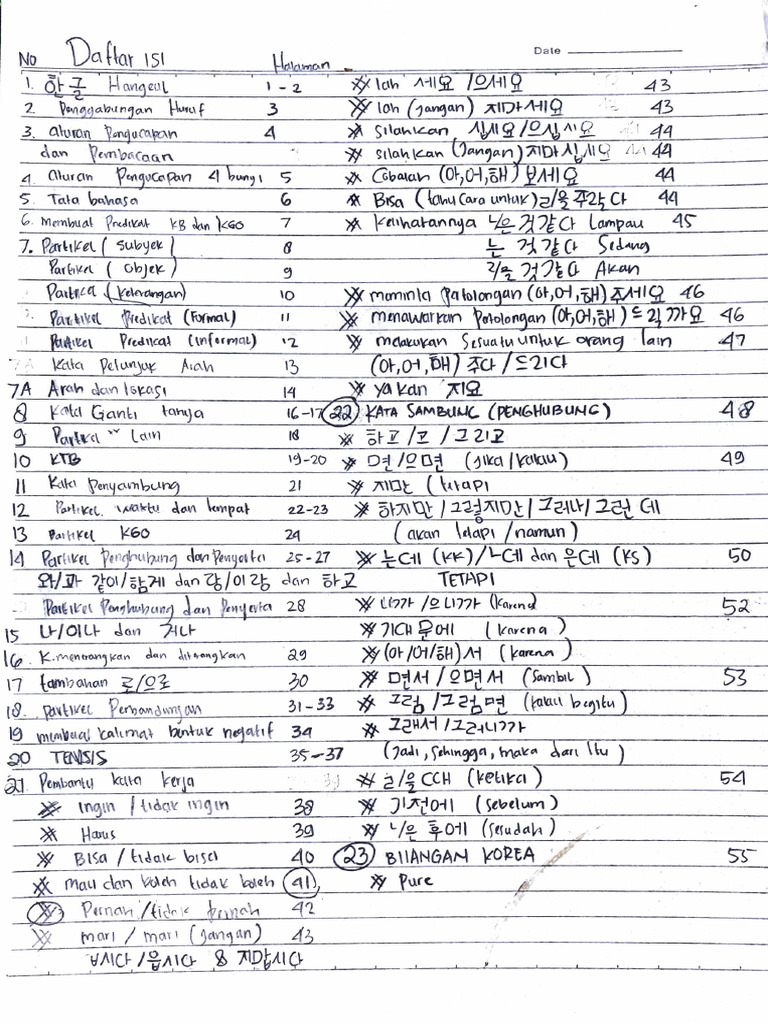 No Daftar ISI Halaman Date
1. 한글 Hangeul 1 - 2
2. Penggabungan Huruf 3
3. Aturan Pengucapan 4
dan Pembacaan
4. Aturan Pengucapan 4 bunyi 5
5. Tata bahasa 6
6. Membuat Predikat KB dan KGO 7
7. Partikel (Subyek) 8
Partikel (Objek) 9
Partikel (Keterangan) 10
Partikel Predikat (Formal) 11
Partikel Predikat (Informal) 12
Kata Petunjuk Arah 13
7A Arah dan lokasi 14
8 Kata Ganti tanya 16-17
9 Partikel" Lain 18
10 KTB 19-20
11 Kata Penyambung 21
12 Partikel waktu dan tempat 22-23
13 Partikel KGO 24
14 Partikel Penghubung dan Penyerta 25-27
와/과 같이/함께 dan 랑/이랑 dan 하고
Partikel Penghubung dan Penyerta 28
15 나/이나 dan 거나
16. K. menerangkan dan diterangkan 29
17 tambahan 로/으로 30
18. Partikel Perbandingan 31-33
19 membuat kalimat bentuk negatif 34
20 TENSIS 35-37
21 Pembantu kata kerja
※ ingin / tidak ingin 38
※ Harus 39
※ Bisa / tidak bisa 40
※ Mau dan boleh tidak boleh 41
※ Pernah / tidak pernah 42
※ mari / mari (jangan) 43
ㅂ시다 / 읍시다 & 지맙시다
※ lah 세요 / 으세요 43
※ lah (jangan) 지마세요 43
※ silahkan 십시요 / 으십시요 44
※ silahkan (jangan) 지마십시요 44
※ Cobalah (아, 어, 해) 보세요 44
※ Bisa (tahu cara untuk) ㄹ/을 주악다 44
※ Kelihatannya ㄴ/은 것 같다 Lampau 45
는 것 같다 Sedang
ㄹ/을 것 같다 Akan
※ meminta patolongan (아, 어, 해) 주세요 46
※ menawarkan potolongan (아, 어, 해) 드릴까요 46
※ melakukan sesuatu untuk orang lain 47
(아, 어, 해) 주다 / 드리다
※ ya kan 지요
22 KATA SAMBUNG (PENGHUBUNG) 48
※ 하고 / 고 / 그리고
※ 면 / 으면 (jika / kalau) 49
※ 지만 (tetapi
※ 하지만 / 그렇지만 / 그러나 / 그런데
(akan tetapi / namun)
※ 는데 (KK) / ㄴ데 dan 은데 (KS) 50
TETAPI
※ 니까 / 으니까 (karena) 52
※ 기 대문에 (karena)
※ (아/어/해)서 (karena)
※ 면서 / 으면서 (sambil) 53
※ 그럼 / 그럼면 (kalau begitu)
※ 그래서 / 그러니까
(jadi, sehingga, maka dari itu)
※ ㄹ/을 CCH (ketika) 54
※ 기 전에 (sebelum)
※ ㄴ/은 후에 (sesudah)
23 BIIANGAN KOREA 55
※ Pure